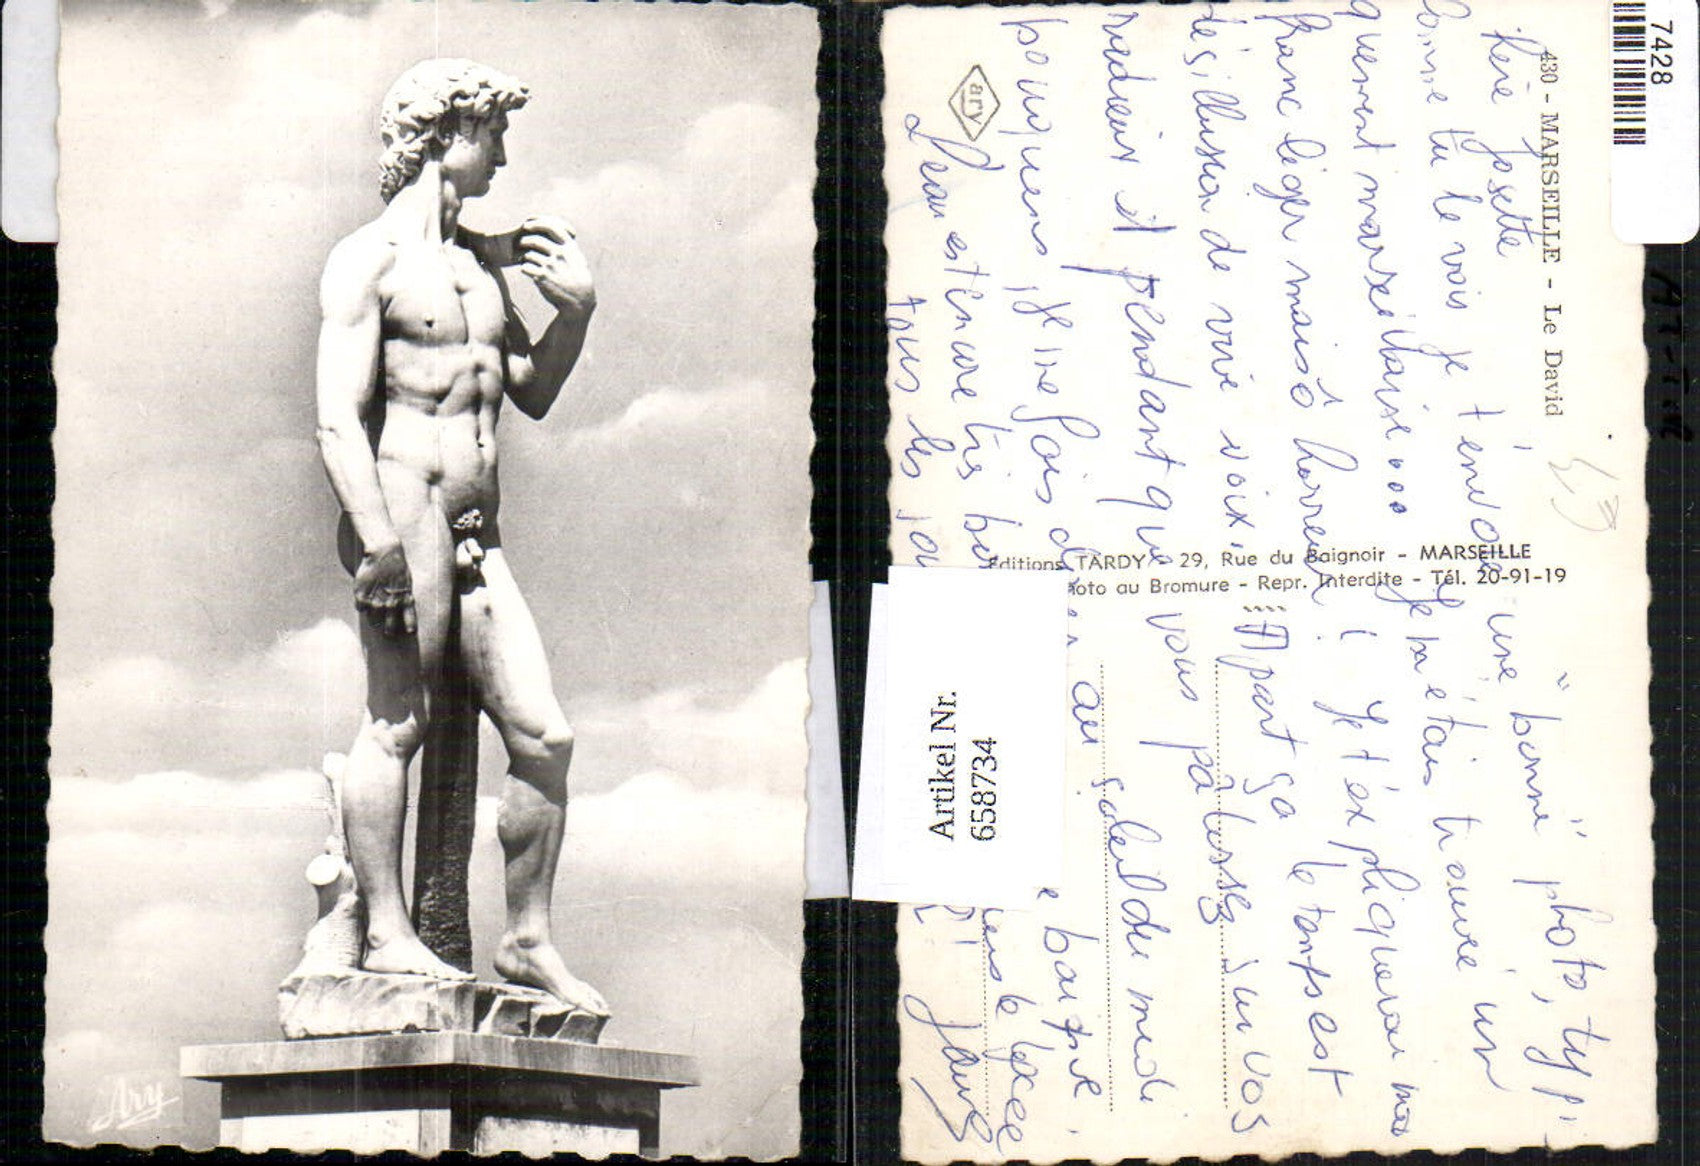 Ary
430 - MARSEILLE - Le David
ary
Editions TARDY - 29, Rue du Baignoir - MARSEILLE
Photo au Bromure - Repr. Interdite - Tél. 20-91-19
Chère Josette
Comme tu le vois je t'envoie une "bonne" photo, typi-
quement marseillaise... Je m'étais trouvé un
franc léger mais ô horreur ! Je t'expliquerai ma
désillusion de vive voix. A part ça le temps est
radieux et pendant que vous pâlissez sur vos
bouquins, je me fais dorer au soleil du midi
L'eau est encore très bonne
e baigne
tous les jou
7428
43
Artikel Nr.
658734